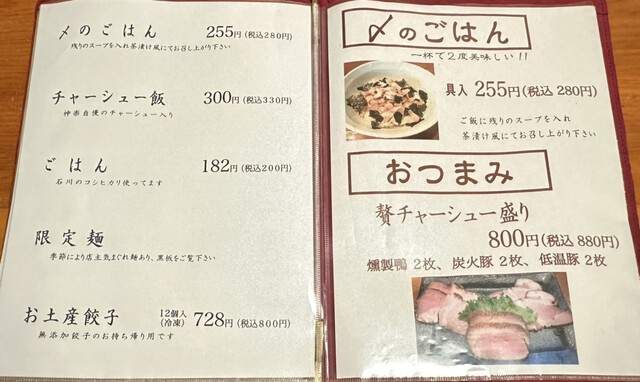 〆のごはん 255円(税込280円)
残りのスープを入れ茶漬け風にてお召し上がり下さい
チャーシュー飯 300円(税込330円)
神楽自慢のチャーシュー入り
ごはん 182円(税込200円)
石川のコシヒカリ使ってます
限定麺
季節により店主気まぐれ麺あり、黒板をご覧下さい
お土産餃子 12個入(冷凍) 728円(税込800円)
無添加餃子のお持ち帰り用です
〆のごはん
一杯で2度美味しい!!
具入 255円(税込 280円)
ご飯に残りのスープを入れ
茶漬け風にてお召し上がり下さい
おつまみ
贅チャーシュー盛り
800円(税込 880円)
燻製鴨 2枚、炭火豚 2枚、低温豚 2枚